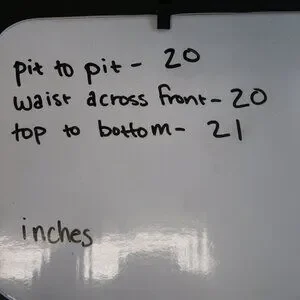 pit to pit - 20
waist across front - 20
top to bottom - 21
inches